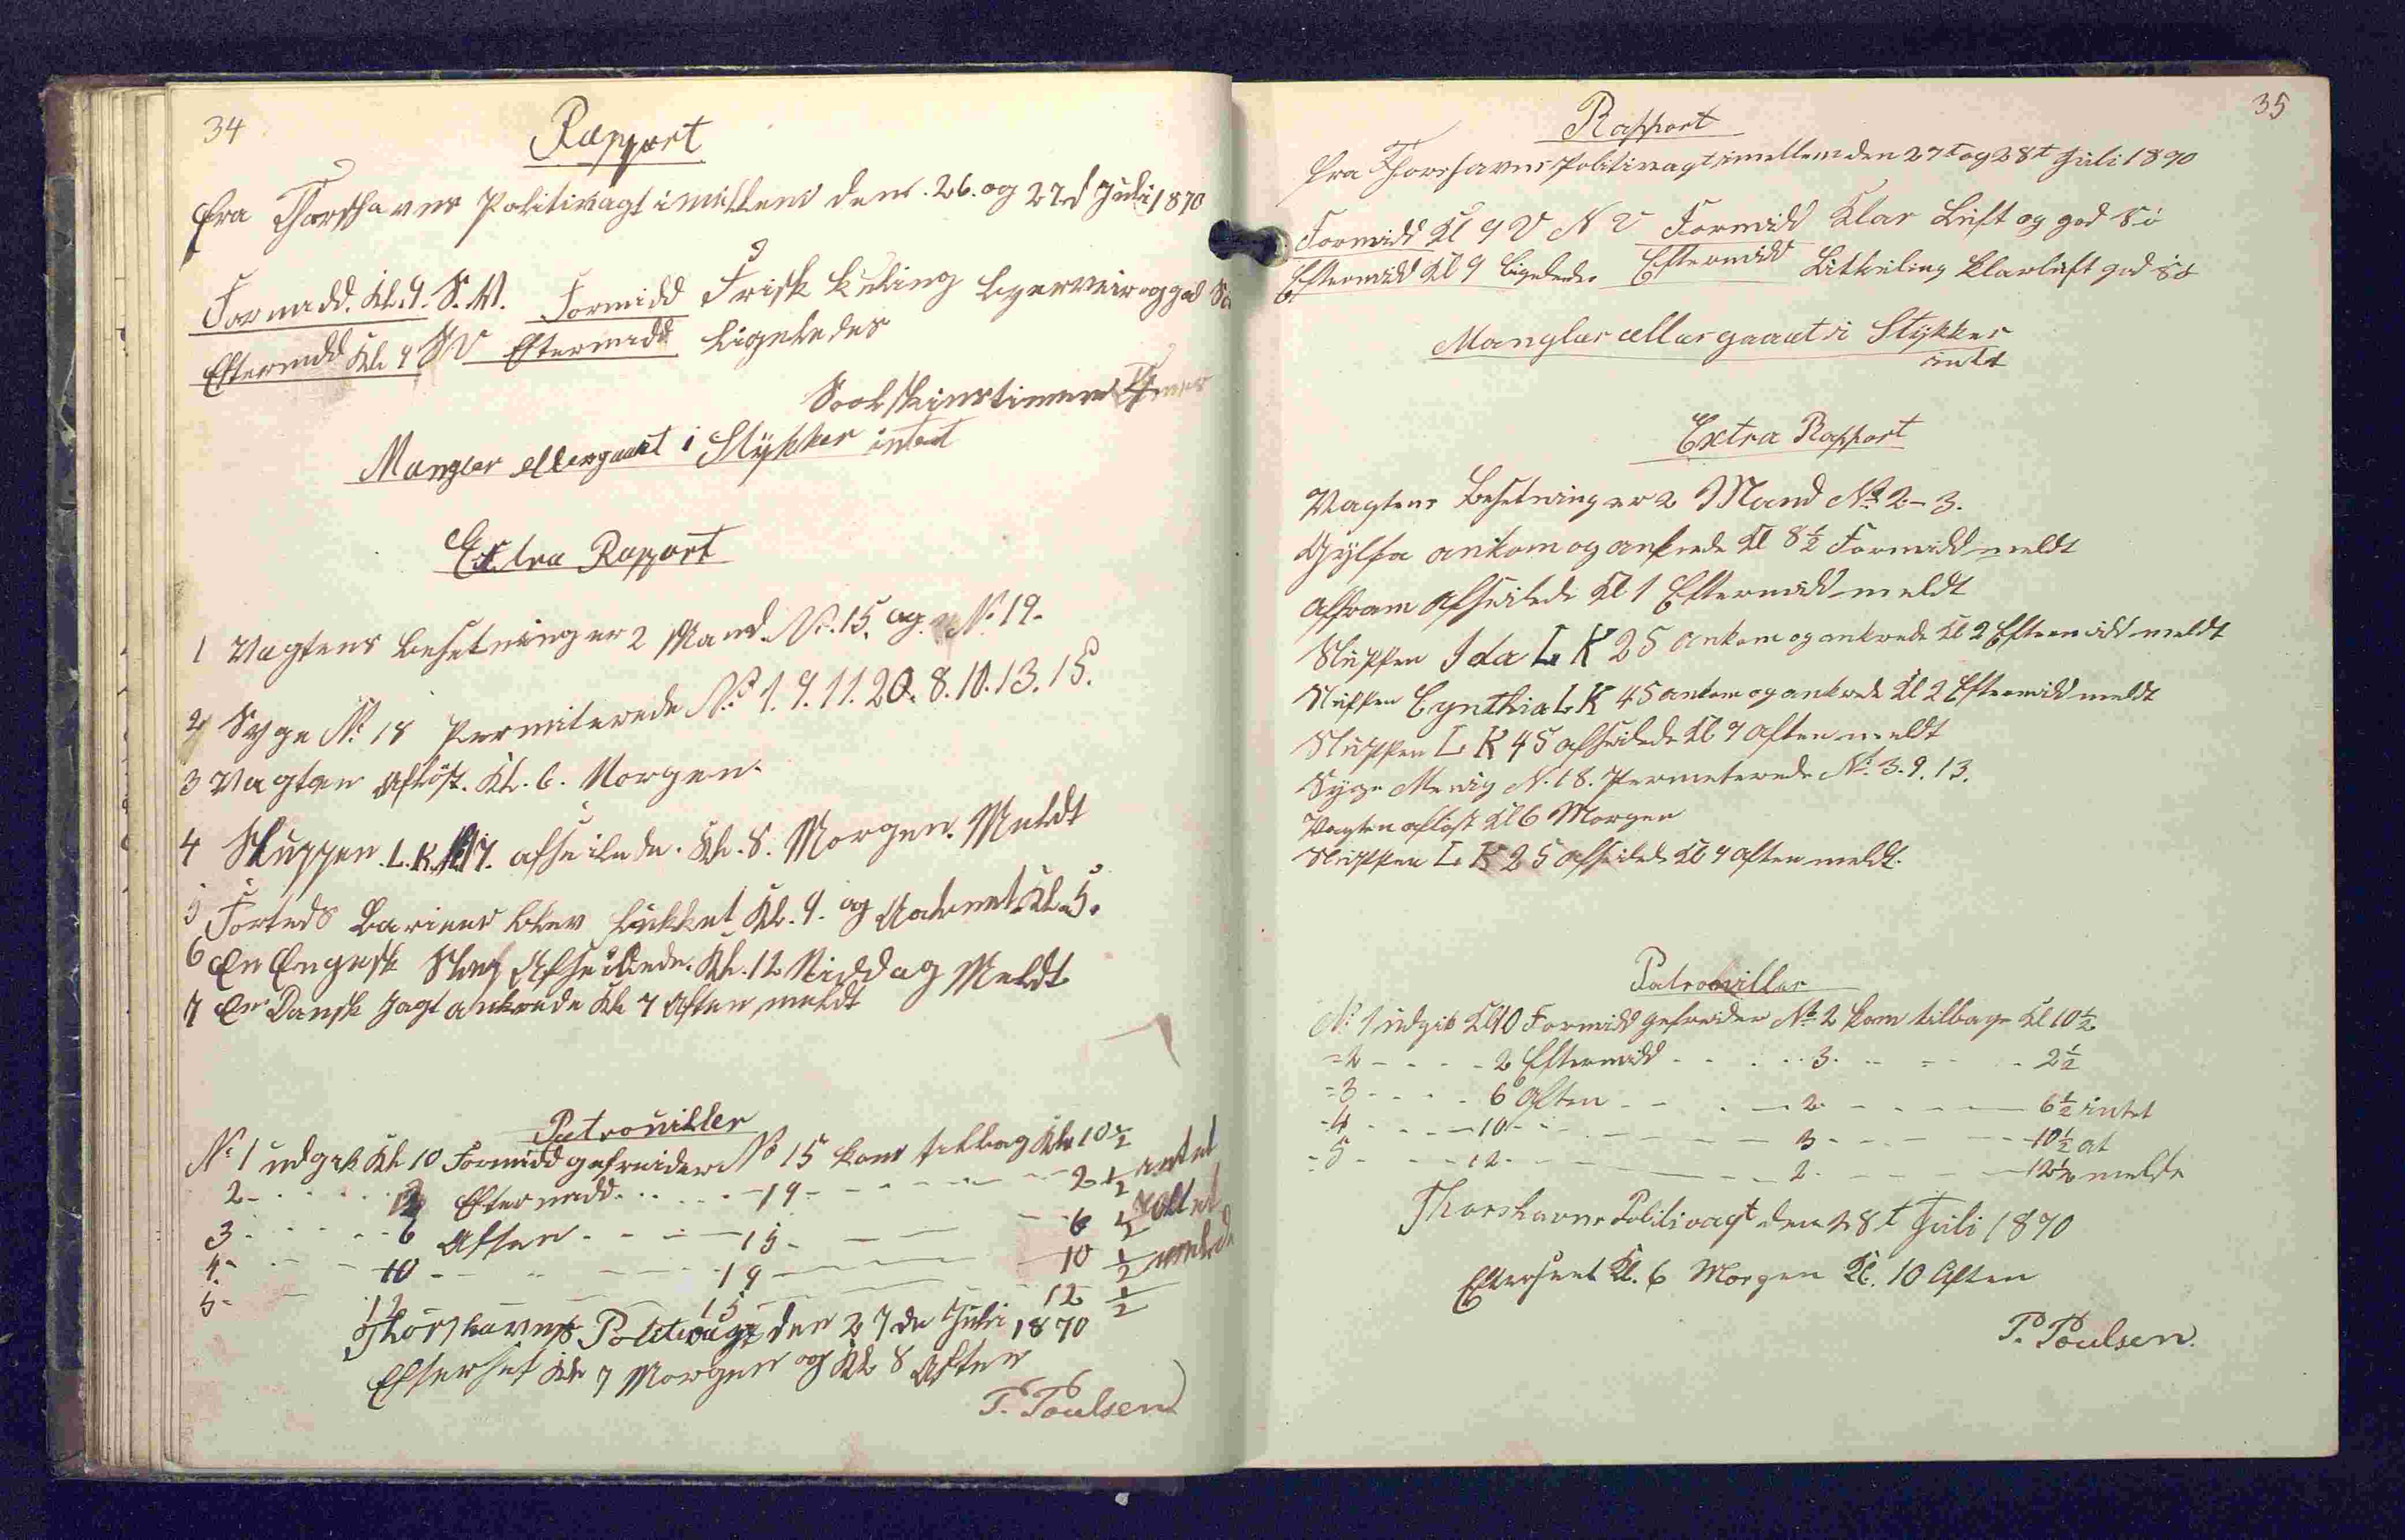 34
Rapport
fra Thorshavns Politivagt imellem den 26. og 27d Juli 1870
Formidd. Kl. 9. S. V. Formidd Frisk Kuling byerveir og god Sø
Eftermidd Kl. 9 SV Eftermidd ligeledes
Soelskinstimer
Mangler eller gaaet i Stykker intet
Extra Rapport
1 Vagtens Besetning er 2 Mand No. 15. og No. 19.
2 Syge No. 18 Permiterede No. 1. 9. 11. 20. 8. 10. 13. 15.
3 Vagten afløst. Kl. 6. Morgen.
4 Sluppen. L. K. 17. afseilede. Kl. 8. Morgen. Meldt
5 Fortets Barierer blev lukket Kl. 9. og Aabnet Kl. 5.
6 En Engelsk Slup Afseilede. Kl. 12 Middag Meldt
7 En Dansk Jagt ankrede Kl 7 Aften meldt
Patrouiller
No 1 udgik Kl 10 Formidd gefreider No 15 kom tilbage Kl 10 1/2
2 - - - 2 Eftermidd. - - - 19 - - - 2 1/2 intet
3 - - - 6 Aften - - - 15 - - - 6 1/2
4 - - - 10 - - - 19 - - - 10 1/2 melde
5 - - - 12 - - - 15 - - - 12 1/2
Thorshavns Politivagt den 27de Juli 1870
Efterset Kl 7 Morgen og Kl 8 Aften
P. Poulsen
35
Rapport
fra Thorshavns Politivagt imellem den 27t og 28t Juli 1870
Formidd Kl 9 V N V Formidd Klar Luft og god Sø
Eftermidd Kl 9 ligeledes Eftermidd Litkuling klarluft god Sø
Mangler eller gaaet i Stykker
intet
Extra Rapport
Vagtens Besetning er 2 Mand No 2 - 3.
Gylfa ankom og ankrede Kl 8 1/2 Formidd meldt
Affram afseilede Kl 1 Eftermidd meldt
Sluppen Ida L K 25 ankom og ankrede Kl 2 Eftermidd meldt
Sluppen Cynthia L K 45 ankom og ankrede Kl 2 Eftermidd meldt
Sluppen L K 45 afseilede Kl 9 Aften meldt
Syge Menig N. 18. Permeterede No. 3. 9. 13.
Vagten afløst Kl 6 Morgen
Sluppen L K 25 afseilede Kl 9 Aften meldt.
Patrouiller
No 1 udgik Kl 10 Formidd gefreider No 2 kom tilbage Kl 10 1/2
- 2 - - - 2 Eftermidd - - - 3 - - - 2 1/2
- 3 - - - 6 Aften - - - 2 - - - 6 1/2 intet
- 4 - - - 10 - - - 3 - - - 10 1/2 at
- 5 - - - 12 - - - 2 - - - 12 1/2 melde
Thorshavns Politivagt den 28t Juli 1870
Efterseet Kl. 6 Morgen Kl. 10 Aften
P. Poulsen.